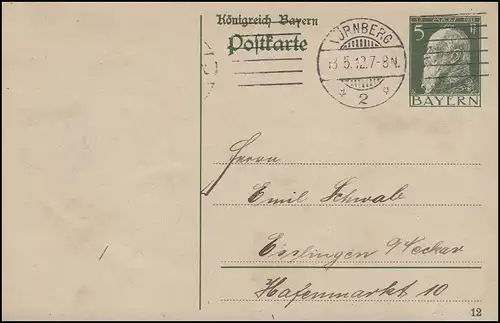 Königreich Bayern
Postkarte
NÜRNBERG
5.12.7-8N.
2
5
BAYERN
Herrn
Emil Schwab
Esslingen a/Neckar
Hafenmarkt 10
12